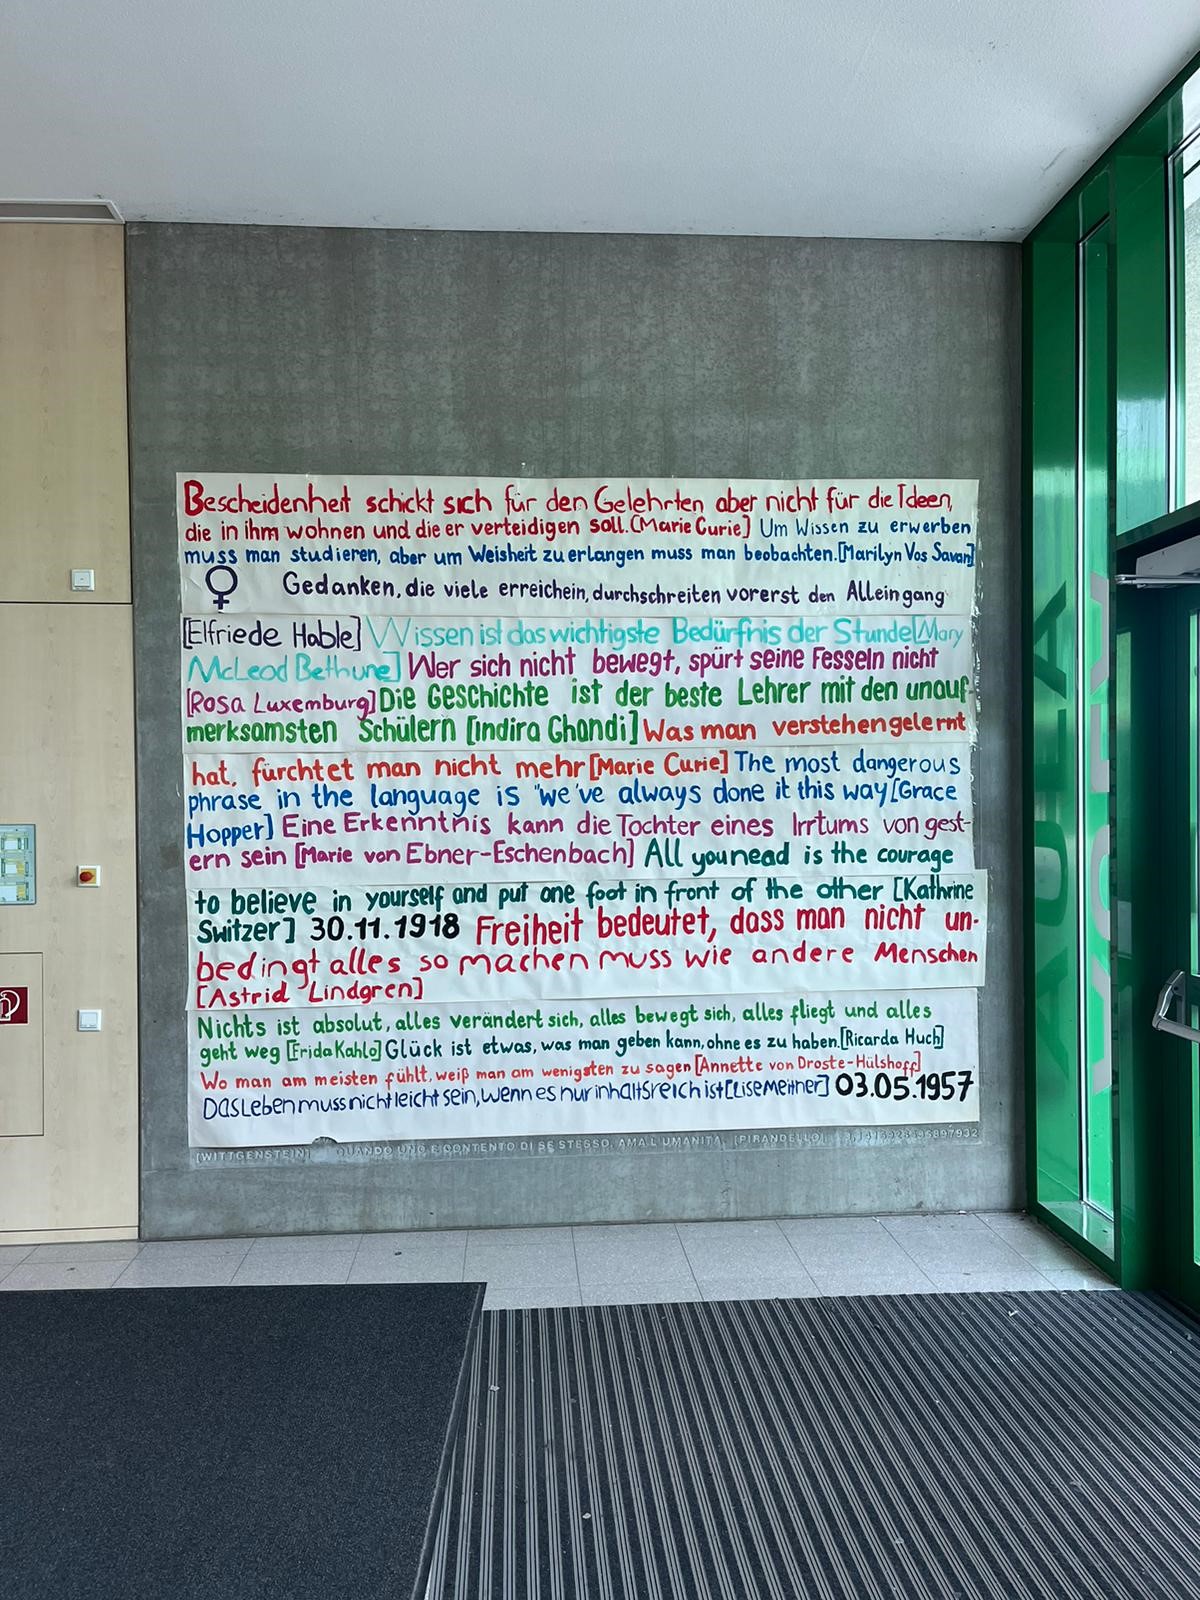 Bescheidenheit schickt sich für den Gelehrten aber nicht für die Ideen,
die in ihm wohnen und die er verteidigen soll.[Marie Curie] Um Wissen zu erwerben
muss man studieren, aber um Weisheit zu erlangen muss man beobachten.[Marilyn Vos Savan]
♀ Gedanken, die viele erreichein, durchschreiten vorerst den Alleingang
[Elfriede Hable] Wissen ist das wichtigste Bedürfnis der Stunde[Mary
McLeod Bethune] Wer sich nicht bewegt, spürt seine Fesseln nicht
[Rosa Luxemburg] Die Geschichte ist der beste Lehrer mit den unauf-
merksamsten Schülern [indira Ghandi] Was man verstehen gelernt
hat, fürchtet man nicht mehr [Marie Curie] The most dangerous
phrase in the language is "we've always done it this way [Grace
Hopper] Eine Erkenntnis kann die Tochter eines Irrtums von gest-
ern sein [Marie von Ebner-Eschenbach] All you nead is the courage
to believe in yourself and put one foot in front of the other [Kathrine
Switzer] 30.11.1918 Freiheit bedeutet, dass man nicht un-
bedingt alles so machen muss wie andere Menschen
[Astrid Lindgren]
Nichts ist absolut, alles verändert sich, alles bewegt sich, alles fliegt und alles
geht weg [Frida Kahlo] Glück ist etwas, was man geben kann, ohne es zu haben.[Ricarda Huch]
Wo man am meisten fühlt, weiß man am wenigsten zu sagen [Annette von Droste-Hülshoff]
Das Leben muss nicht leicht sein, wenn es nur inhaltsreich ist [Lise Meitner] 03.05.1957
[WITTGENSTEIN] QUANDO UNO E CONTENTO DI SE STESSO, AMA L UMANITA. [PIRANDELLO]
AULA